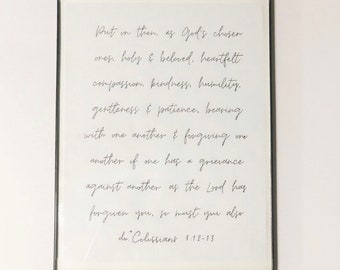 Put on then, as God's chosen
ones, holy & beloved, heartfelt
compassion, kindness, humility,
gentleness & patience, bearing
with one another & forgiving one
another if one has a grievance
against another as the Lord has
forgiven you, so must you also
do." Colossians 3:12-13